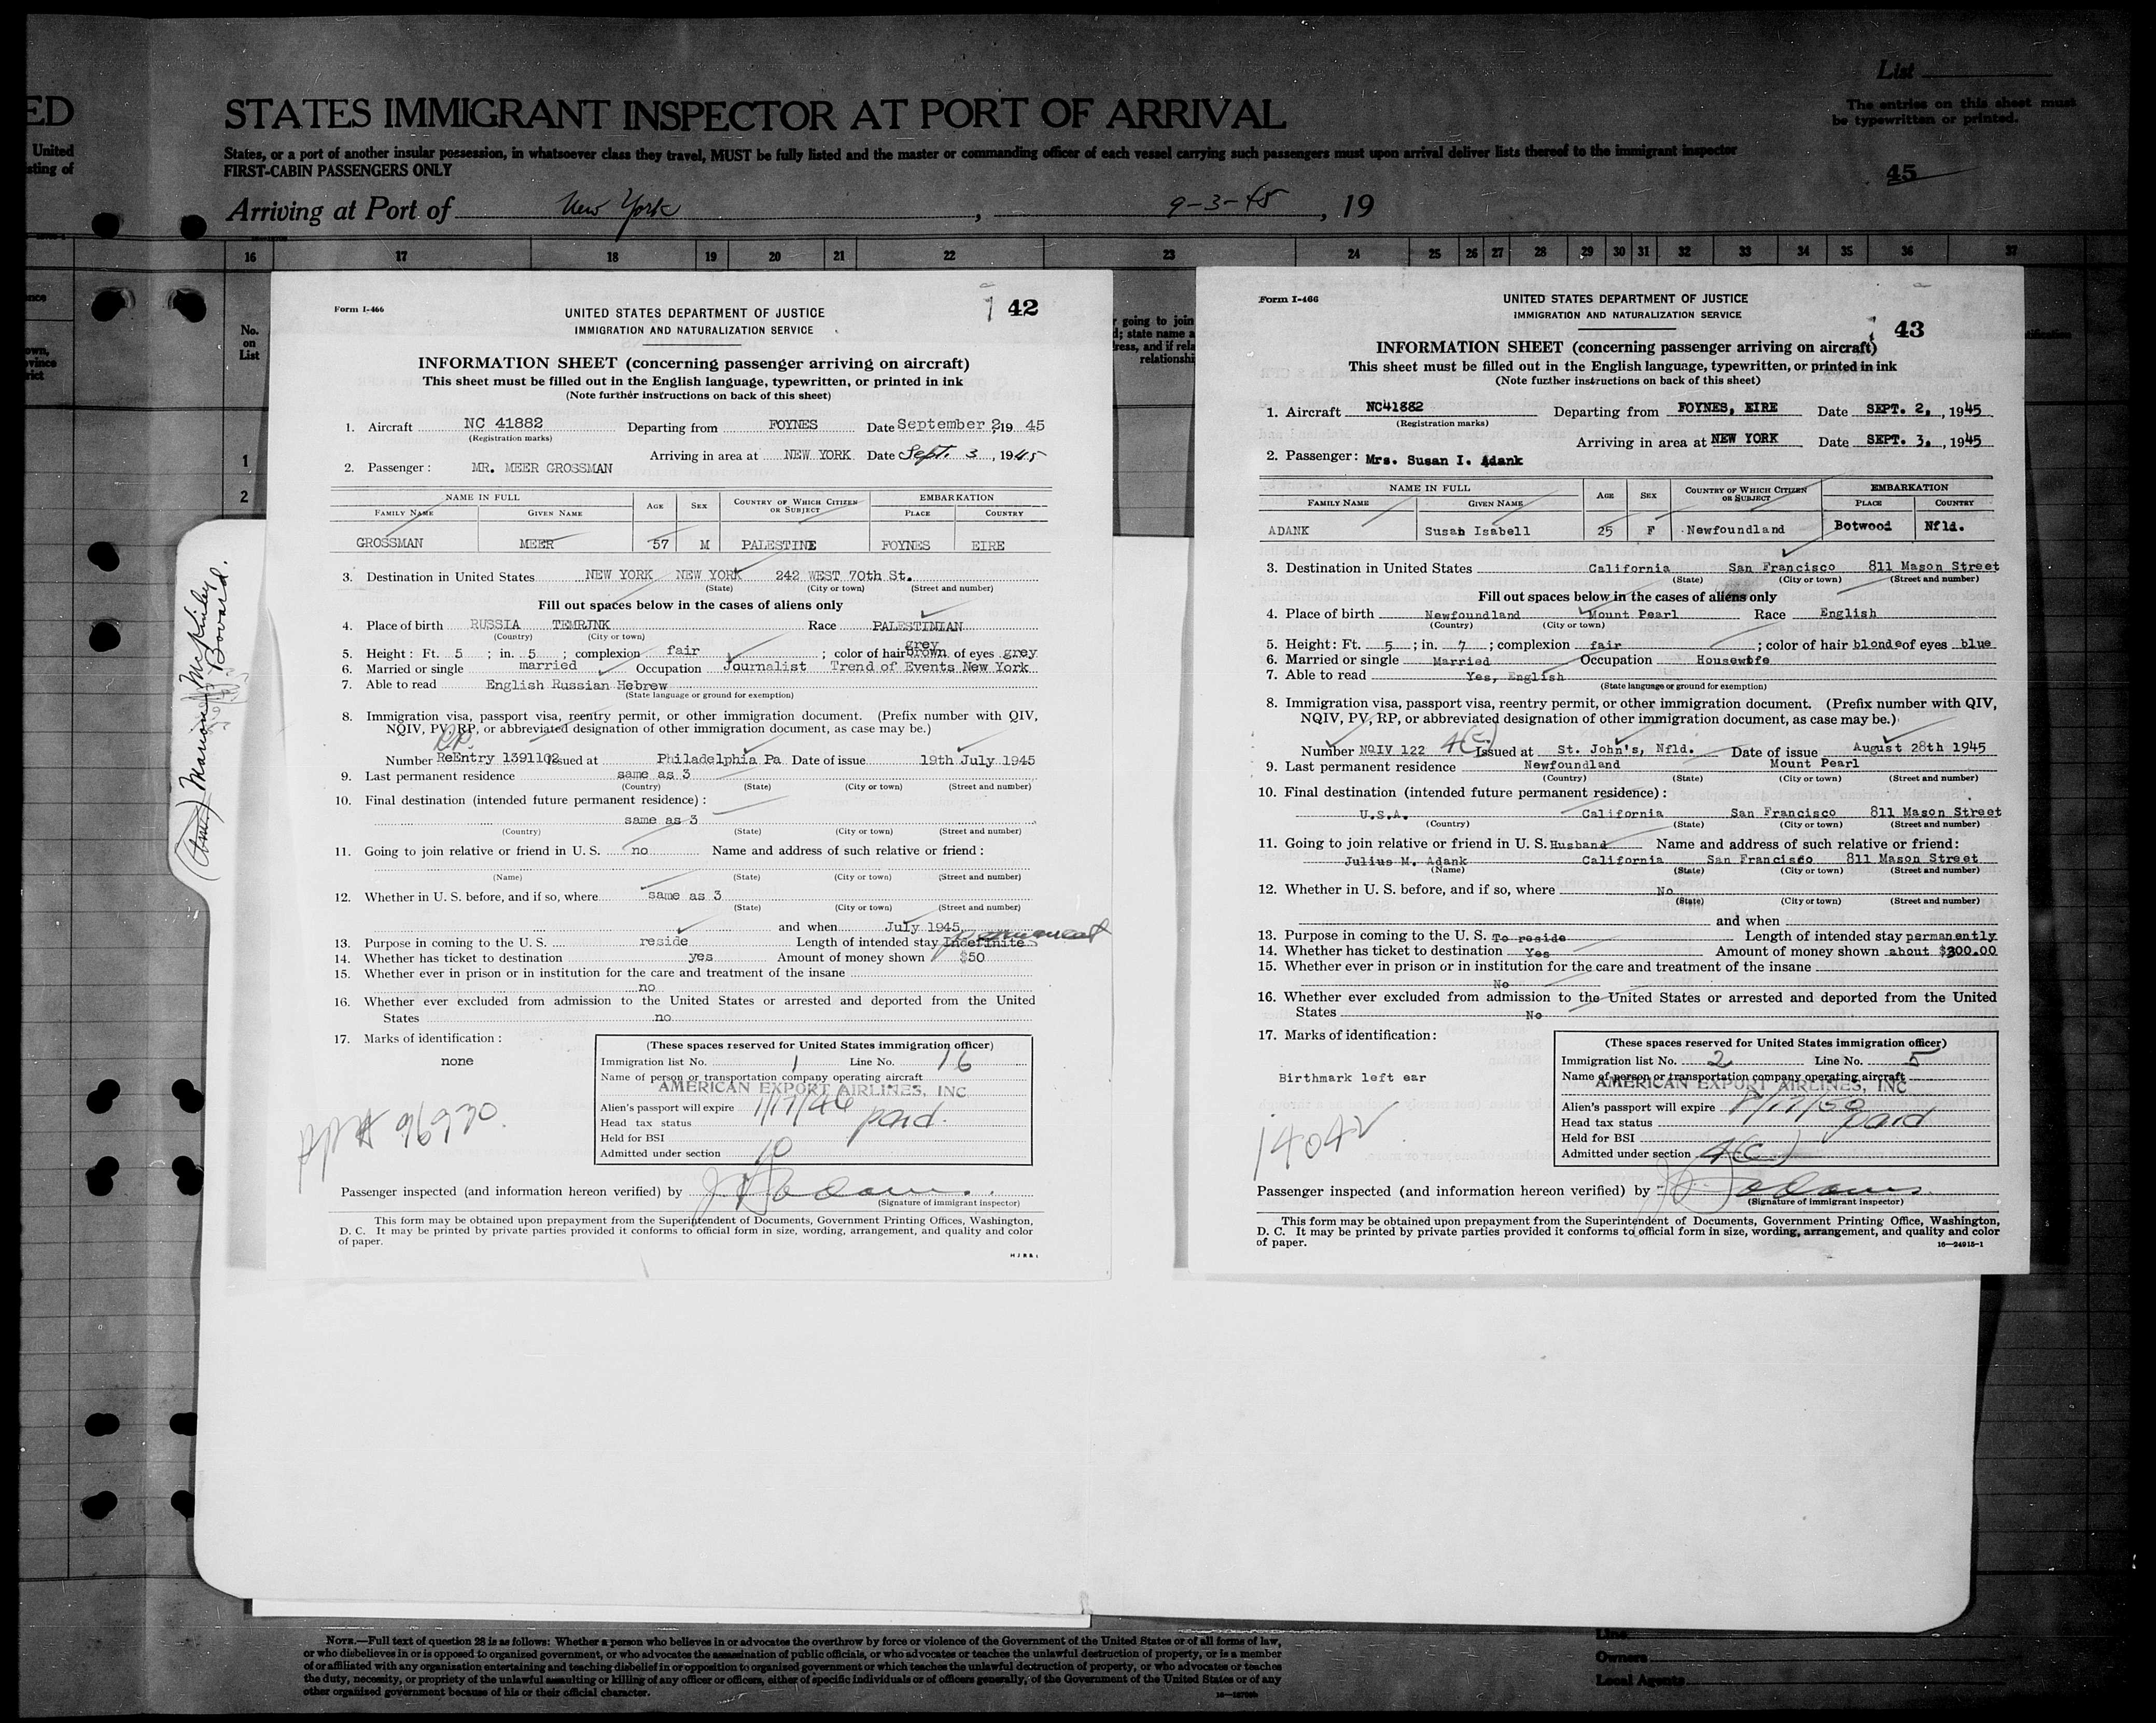 ED
United
sting of
STATES IMMIGRANT INSPECTOR AT PORT OF ARRIVAL
States, or a port of another insular possession, in whatsoever class they travel, MUST be fully listed and the master or commanding officer of each vessel carrying such passengers must upon arrival deliver lists thereof to the immigrant inspector
FIRST-CABIN PASSENGERS ONLY
List
The entries on this sheet must
be typewritten or printed.
45
Arriving at Port of New York, 9-3-45, 19
16 17 18 19 20 21 22 23 24 25 26 27 28 29 30 31 32 33 34 35 36 37
No.
on
List
1
2
Marion McKinley
Bovard.
Form I-466
42
UNITED STATES DEPARTMENT OF JUSTICE
IMMIGRATION AND NATURALIZATION SERVICE
INFORMATION SHEET (concerning passenger arriving on aircraft)
This sheet must be filled out in the English language, typewritten, or printed in ink
(Note further instructions on back of this sheet)
1. Aircraft NC 41882 Departing from FOYNES Date September 2, 19 45
(Registration marks)
Arriving in area at NEW YORK Date Sept. 3, 1945
2. Passenger: MR. MEER GROSSMAN
NAME IN FULL AGE SEX COUNTRY OF WHICH CITIZEN OR SUBJECT EMBARKATION
FAMILY NAME GIVEN NAME PLACE COUNTRY
GROSSMAN MEER 57 M PALESTINE FOYNES EIRE
3. Destination in United States NEW YORK NEW YORK 242 WEST 70th St.
(State) (City or town) (Street and number)
Fill out spaces below in the cases of aliens only
4. Place of birth RUSSIA TEMRJNK Race PALESTINIAN
(Country) (City or town)
grey
5. Height: Ft. 5; in. 5; complexion fair; color of hair brown of eyes grey
6. Married or single married Occupation Journalist Trend of Events New York
7. Able to read English Russian Hebrew
(State language or ground for exemption)
8. Immigration visa, passport visa, reentry permit, or other immigration document. (Prefix number with QIV,
NQIV, PV, RP, or abbreviated designation of other immigration document, as case may be.)
R.P.
Number ReEntry 1391102 Issued at Philadelphia Pa Date of issue 19th July 1945
9. Last permanent residence same as 3
(Country) (State) (City or town) (Street and number)
10. Final destination (intended future permanent residence):
same as 3
(Country) (State) (City or town) (Street and number)
11. Going to join relative or friend in U. S. no Name and address of such relative or friend:
(Name) (State) (City or town) (Street and number)
12. Whether in U. S. before, and if so, where same as 3
(State) (City or town) (Street and number)
and when July 1945
permanent
13. Purpose in coming to the U. S. reside Length of intended stay Indefinite
14. Whether has ticket to destination yes Amount of money shown $50
15. Whether ever in prison or in institution for the care and treatment of the insane
no
16. Whether ever excluded from admission to the United States or arrested and deported from the United
States no
17. Marks of identification:
none
(These spaces reserved for United States immigration officer)
Immigration list No. 1 Line No. 16
Name of person or transportation company operating aircraft
AMERICAN EXPORT AIRLINES, INC
Alien's passport will expire 1/17/46
Head tax status paid.
Held for BSI
Admitted under section 10
Passenger inspected (and information hereon verified) by
(Signature of immigrant inspector)
This form may be obtained upon prepayment from the Superintendent of Documents, Government Printing Offices, Washington,
D. C. It may be printed by private parties provided it conforms to official form in size, wording, arrangement, and quality and color
of paper.
r going to join
d; state name a
ress, and if rela
relationshi
Form I-466
43
UNITED STATES DEPARTMENT OF JUSTICE
IMMIGRATION AND NATURALIZATION SERVICE
INFORMATION SHEET (concerning passenger arriving on aircraft)
This sheet must be filled out in the English language, typewritten, or printed in ink
(Note further instructions on back of this sheet)
1. Aircraft NC41882 Departing from FOYNES, EIRE Date SEPT. 2, 1945
(Registration marks)
Arriving in area at NEW YORK Date SEPT. 3, 1945
2. Passenger: Mrs. Susan I. Adank
NAME IN FULL AGE SEX COUNTRY OF WHICH CITIZEN OR SUBJECT EMBARKATION
FAMILY NAME GIVEN NAME PLACE COUNTRY
ADANK Susan Isabell 25 F Newfoundland Botwood Nfld.
3. Destination in United States California San Francisco 811 Mason Street
(State) (City or town) (Street and number)
Fill out spaces below in the cases of aliens only
4. Place of birth Newfoundland Mount Pearl Race English
(Country) (City or town)
5. Height: Ft. 5; in. 7; complexion fair; color of hair blonde of eyes blue
6. Married or single Married Occupation Housewofe
7. Able to read Yes, English
(State language or ground for exemption)
8. Immigration visa, passport visa, reentry permit, or other immigration document. (Prefix number with QIV,
NQIV, PV, RP, or abbreviated designation of other immigration document, as case may be.)
Number NQIV 122 4(c) Issued at St. John's, Nfld. Date of issue August 28th 1945
9. Last permanent residence Newfoundland Mount Pearl
(Country) (State) (City or town) (Street and number)
10. Final destination (intended future permanent residence):
U.S.A. California San Francisco 811 Mason Street
(Country) (State) (City or town) (Street and number)
11. Going to join relative or friend in U. S. Husband Name and address of such relative or friend:
Julius M. Adank California San Francisco 811 Mason Street
(Name) (State) (City or town) (Street and number)
12. Whether in U. S. before, and if so, where No
(State) (City or town) (Street and number)
and when
13. Purpose in coming to the U. S. To reside Length of intended stay permanently
14. Whether has ticket to destination Yes Amount of money shown about $300.00
15. Whether ever in prison or in institution for the care and treatment of the insane
No
16. Whether ever excluded from admission to the United States or arrested and deported from the United
States No
17. Marks of identification:
Birthmark left ear
1404V
(These spaces reserved for United States immigration officer)
Immigration list No. 2 Line No. 5
Name of person or transportation company operating aircraft
AMERICAN EXPORT AIRLINES, INC
Alien's passport will expire 8/17/50
Head tax status paid
Held for BSI
Admitted under section 4(c)
Passenger inspected (and information hereon verified) by
(Signature of immigrant inspector)
This form may be obtained upon prepayment from the Superintendent of Documents, Government Printing Office, Washington,
D. C. It may be printed by private parties provided it conforms to official form in size, wording, arrangement, and quality and color
of paper.
16—24915-1
NOTE.—Full text of question 28 is as follows: Whether a person who believes in or advocates the overthrow by force or violence of the Government of the United States or of all forms of law,
or who disbelieves in or is opposed to organized government, or who advocates the assassination of public officials, or who advocates or teaches the unlawful destruction of property, or is a member
of or affiliated with any organization entertaining and teaching disbelief in or opposition to organized government or which teaches the unlawful destruction of property, or who advocates or teaches
the duty, necessity, or propriety of the unlawful assaulting or killing of any officer or officers, either of specific individuals or of officers generally, of the Government of the United States or of any
other organized government because of his or their official character.
Line
Owners
Local Agents